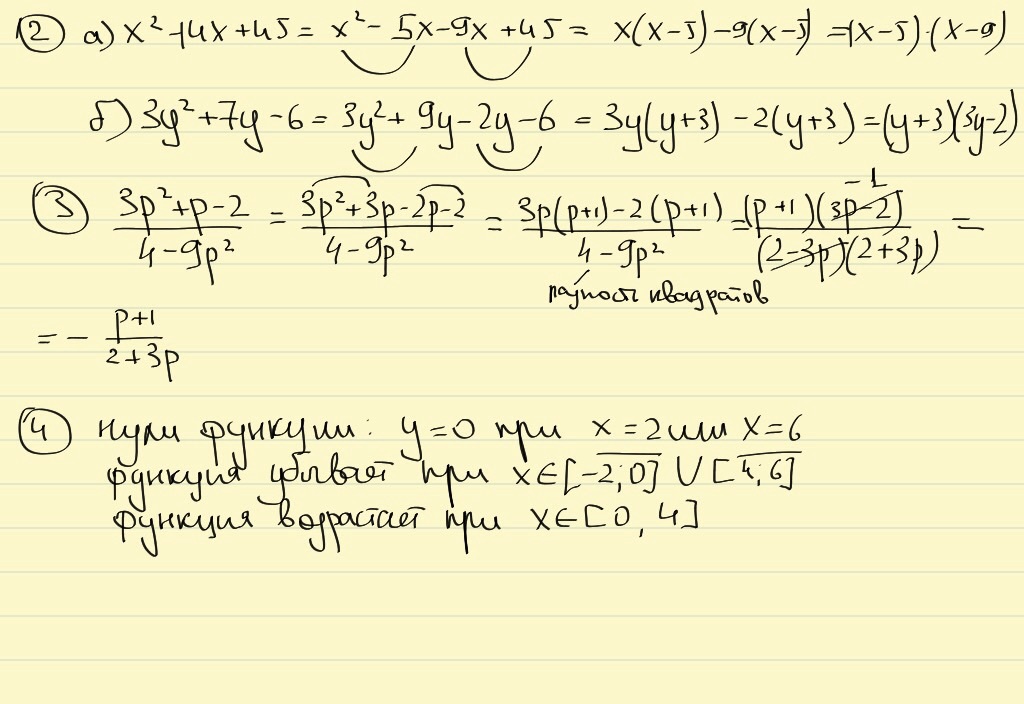 ② а) x² - 14x + 45 = x² - 5x - 9x + 45 = x(x-5) - 9(x-5) = (x-5)·(x-9)
б) 3y² + 7y - 6 = 3y² + 9y - 2y - 6 = 3y(y+3) - 2(y+3) = (y+3)(3y-2)
③ (3p²+p-2)/(4-9p²) = (3p²+3p-2p-2)/(4-9p²) = (3p(p+1)-2(p+1))/(4-9p²) = ((p+1)(3p-2))/((2-3p)(2+3p)) =
-1
разность квадратов
= - (p+1)/(2+3p)
④ нули функции: y=0 при x=2 или x=6
функция убывает при x∈[-2;0] ∪ [4;6]
функция возрастает при x∈[0, 4]